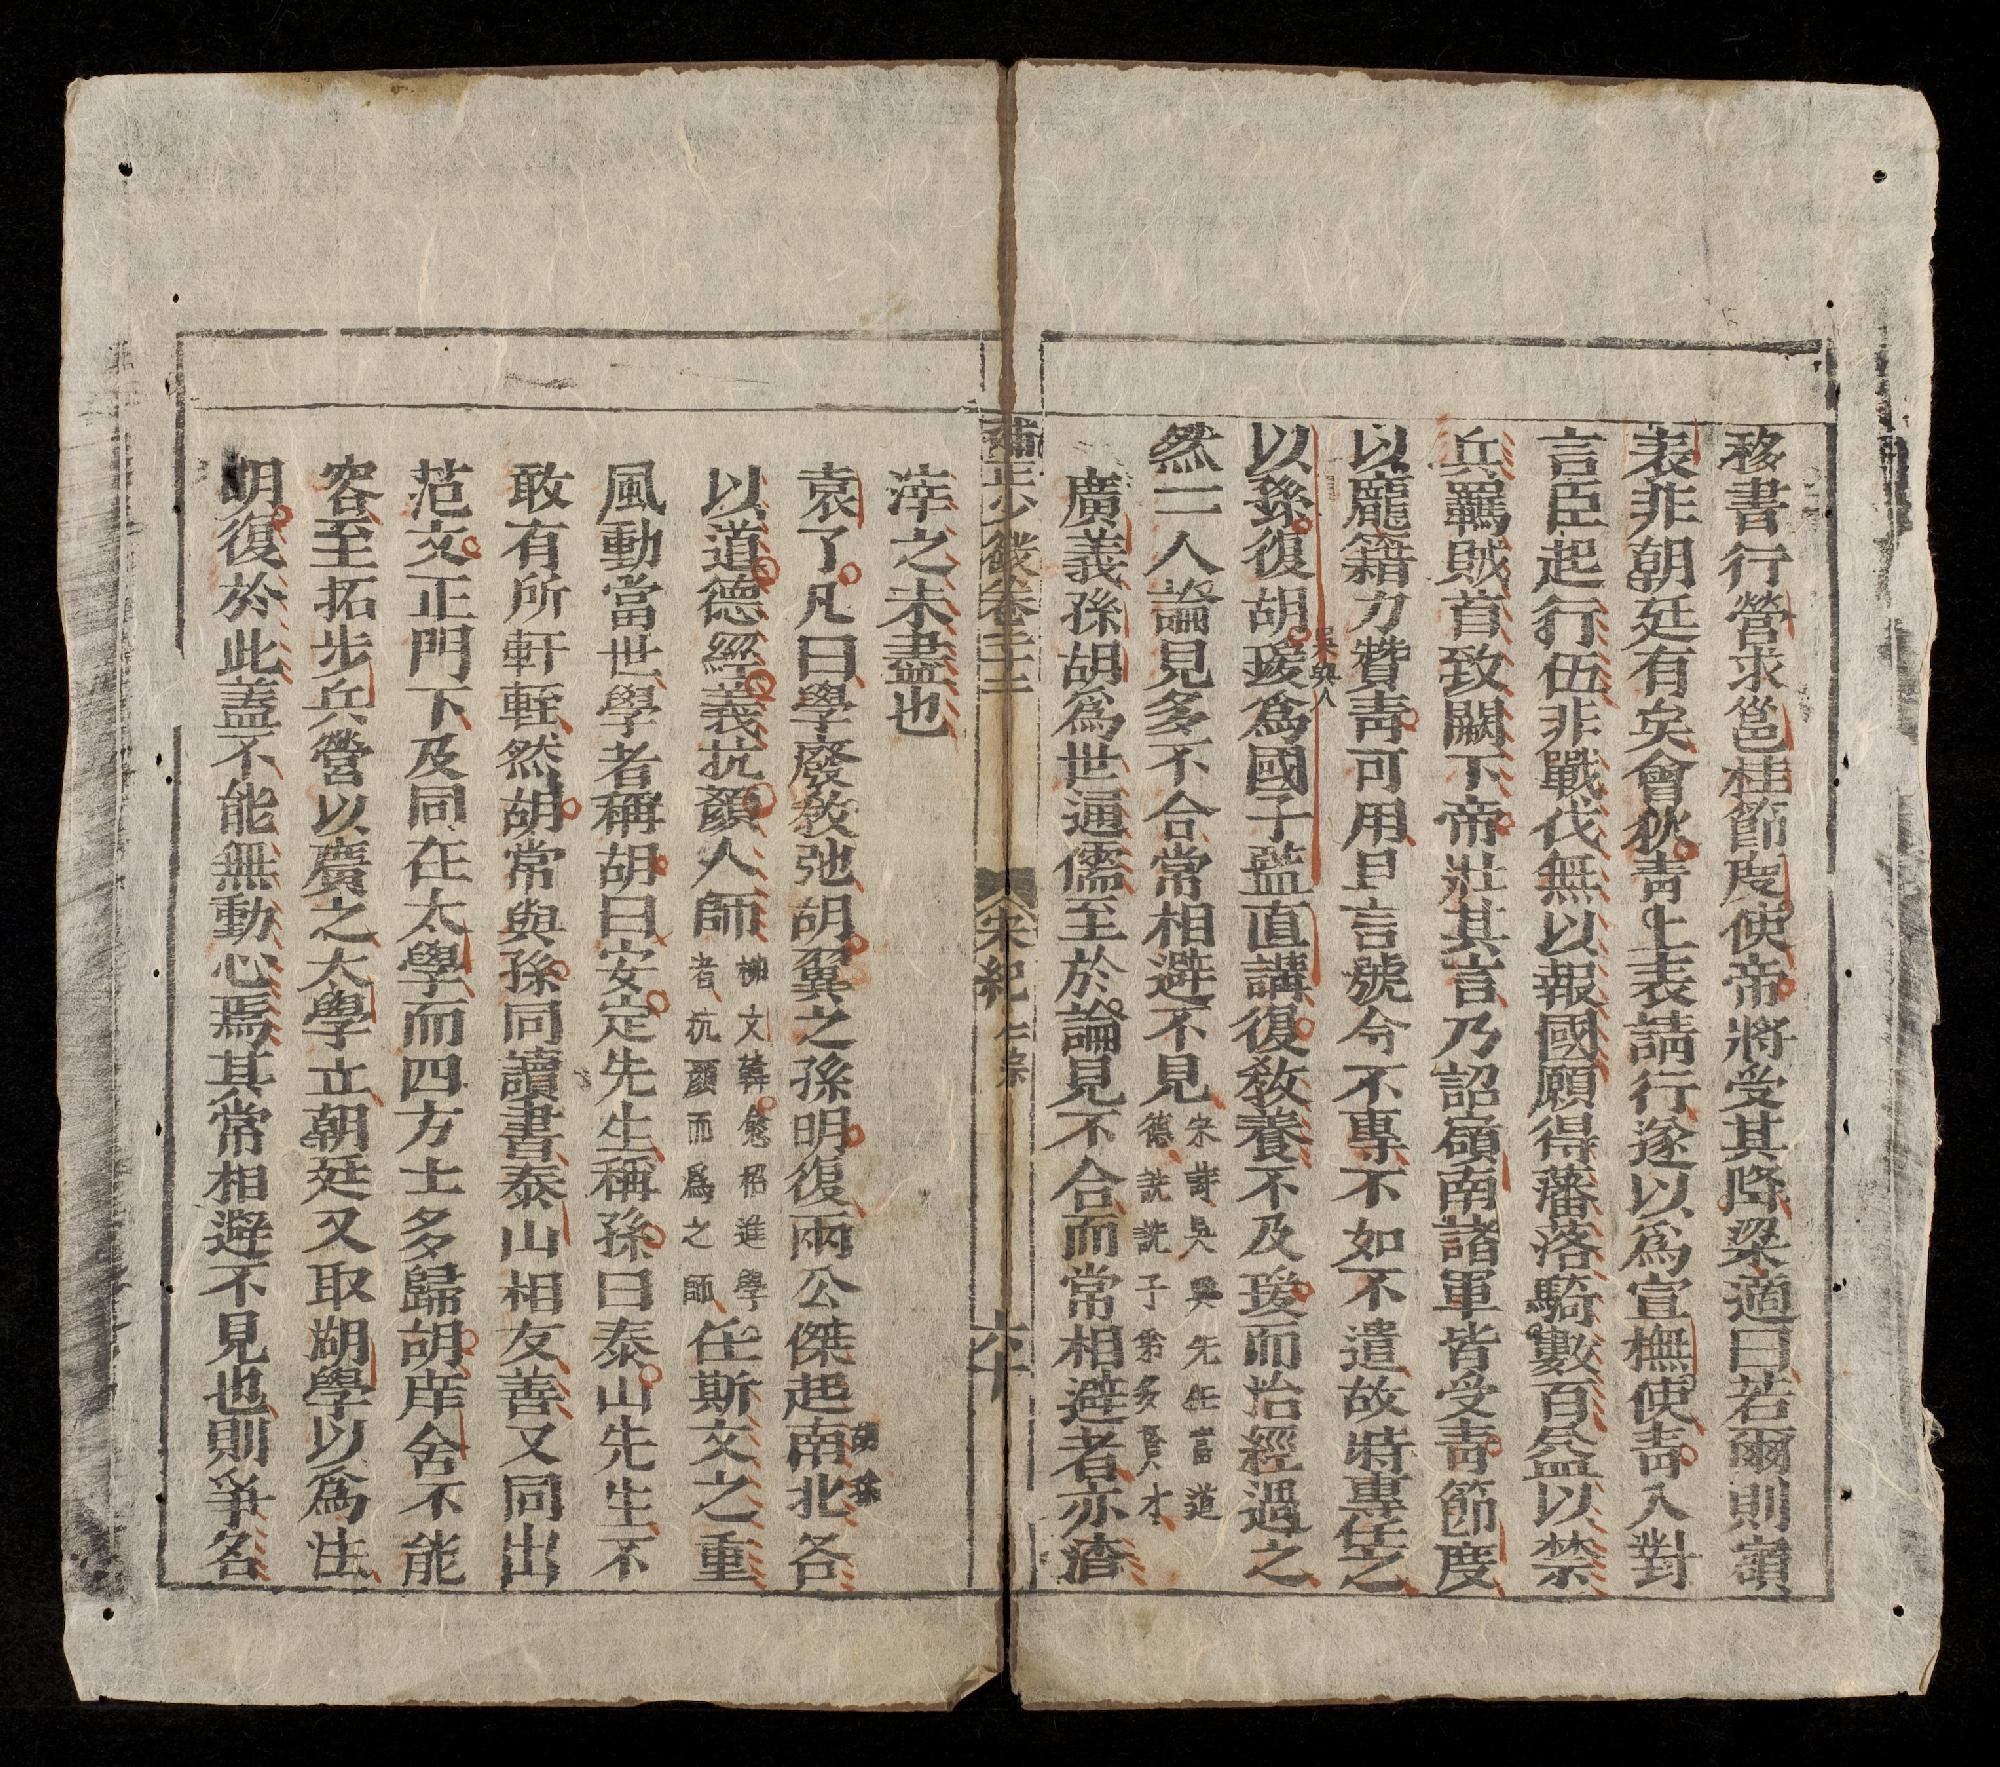 移書行營求邕桂節度使帝將受其降梁適曰若爾則嶺
表非朝廷有矣會狄靑上表請行遂以爲宣撫使靑入對
言臣起行伍非戰伐無以報國願得藩落騎數百益以禁
兵羈賊首致闕下帝壯其言乃詔嶺南諸軍皆受靑節度
以龐籍力贊靑可用且言號令不專不如不遣故特專任之
以孫復胡瑗爲國子監直講復敎養不及瑗而治經過之
吳興人
然二人論見多不合常相避不見
宋詩吳吳先任富道
德詵詵子弟多賢才
廣義孫胡爲世逼儒至於論見不合而常相避者亦渣
滓之未盡也
補正少微卷二十三
宋紀
仁宗
六十
袁了凡曰學廢敎弛胡翼之孫明復兩公傑起南北各
胡孫
以道德經義抗顏人師
柳文韓愈招進學
者抗顏而爲之師
任斯文之重
風動當世學者稱胡曰安定先生稱孫曰泰山先生不
敢有所軒輊然胡常與孫同讀書泰山相友善又同出
范文正門下及同在太學而四方士多歸胡庠舍不能
容至拓步兵營以廣之太學立朝廷又取湖學以爲法
明復於此蓋不能無動心焉其常相避不見也則爭名